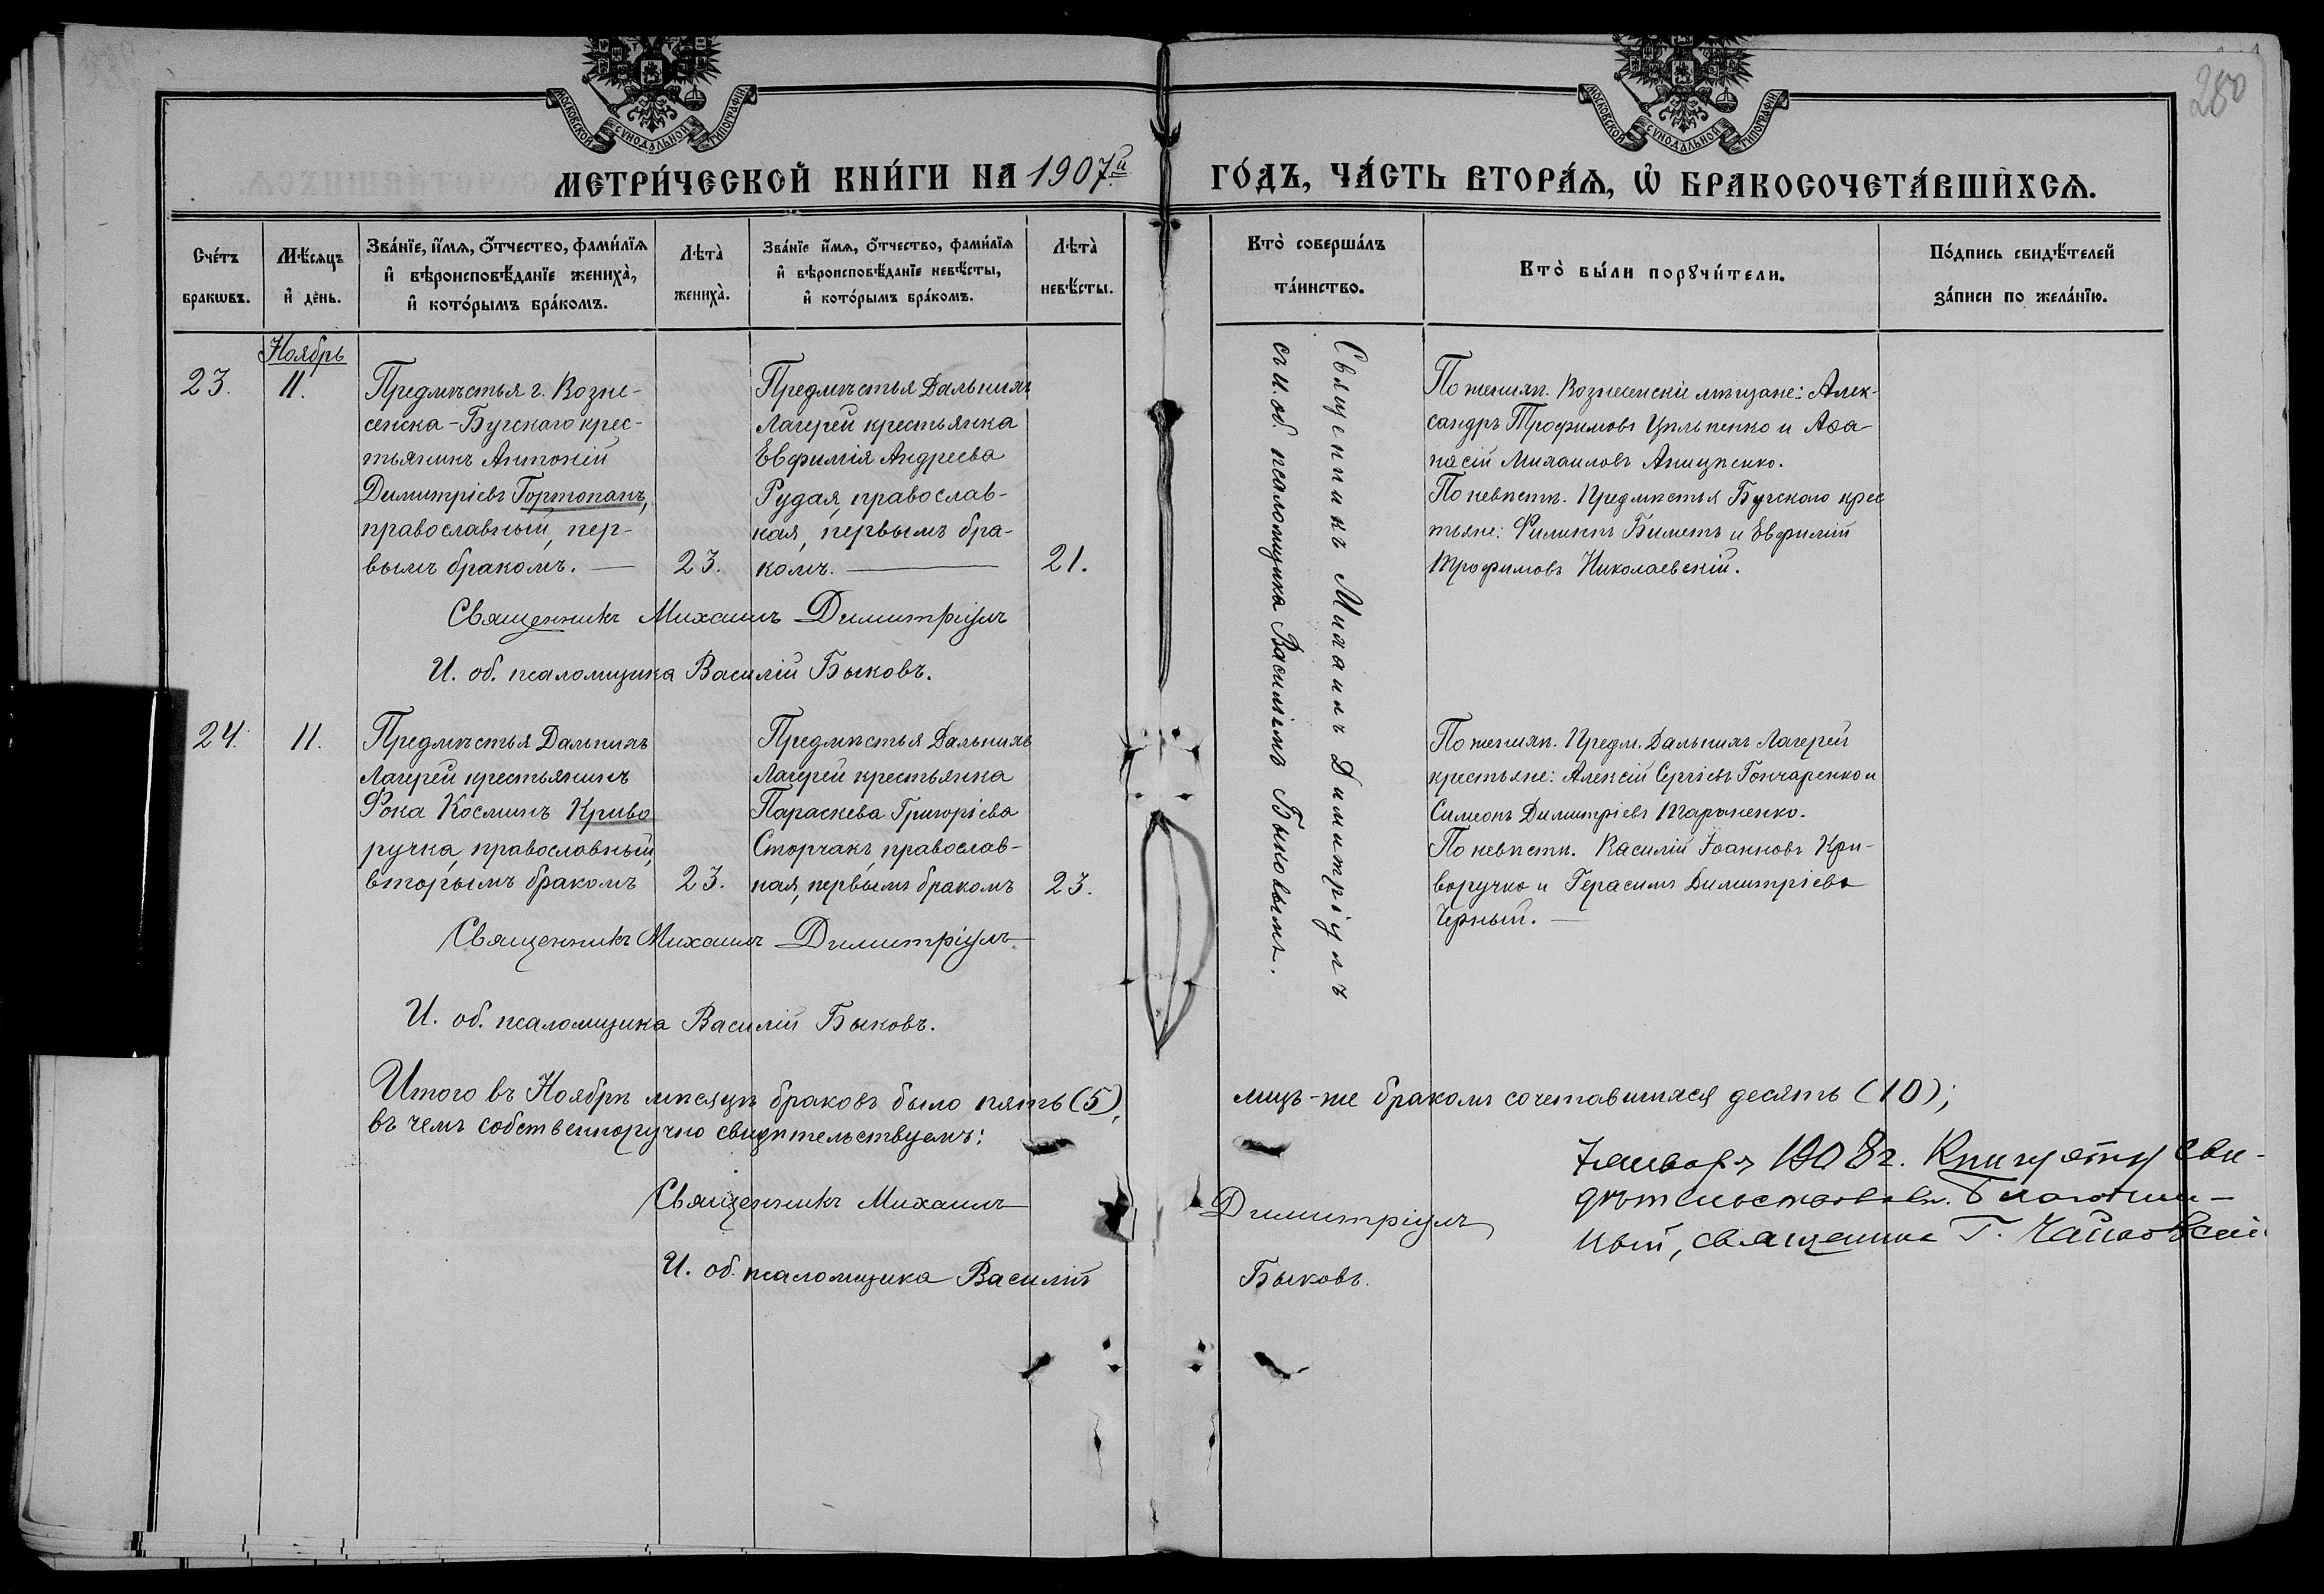 280
МОСКОВСКОЙ СѴНОДАЛЬНОЙ ТИПОГРАФІИ
МОСКОВСКОЙ СѴНОДАЛЬНОЙ ТИПОГРАФІИ
МЕТРИ́ЧЕСКОЙ КНИ́ГИ НА 1907й
ГО́ДЪ, ЧА́СТЬ ВТОРА́Ѧ, Ѡ҆ БРАКОСОЧЕТА́ВШИХСѦ.
Сче́тъ бракѡвъ.
Мѣ́сѧцъ и҆ де́нь.
Зва́нїе, и҆́мѧ, ѻ҆́тчество, фами́лїѧ
и҆ вѣроисповѣ́данїе жениха̀,
и҆ кото́рымъ бра́комъ.
Лѣта̀ жениха̀.
Зва́нїе и҆́мѧ, ѻ҆́тчество, фами́лїѧ
и҆ вѣроисповѣ́данїе невѣ́сты,
и҆ кото́рымъ бра́комъ.
Лѣта̀ невѣ́сты.
Кто̀ соверша́лъ
та́инство.
Кто̀ бы́ли порꙋчи́тели.
По́дпись свидѣ́телей
за́писи по жела́нїю.
Ноябрь
23.
11.
Предмѣстья г. Возне-
сенска-Бугскаго крес-
тьянинъ Антоній
Димитріевъ Гортопанъ,
православный, пер-
вымъ бракомъ. —
23.
Предмѣстья Дальнихъ
Лагерей крестьянка
Евфимія Андреева
Рудая, православ-
ная, первымъ бра-
комъ. —
21.
Священникъ Михаилъ Димитріулъ
съ и. об. псаломщика Василіемъ Быковымъ.
По женихѣ. Вознесенскіе мѣщане: Алек-
сандръ Трофимовъ Цильпенко и Аѳа-
насій Михаиловъ Анищенко.
По невѣстѣ. Предмѣстья Бугскаго крес
тьяне: Филиппъ Билетъ и Евфимій
Трофимовъ Николаевскій.
Священникъ Михаилъ Димитріулъ
И. об. псаломщика Василій Быковъ.
24.
11.
Предмѣстья Дальнихъ
Лагерей крестьянинъ
Фока Косминъ Криво
ручка, православный,
вторымъ бракомъ
23.
Предмѣстья Дальнихъ
Лагерей крестьянка
Параскева Григоріева
Сторчакъ, православ-
ная, первымъ бракомъ
23.
По женихѣ. Предм. Дальнихъ Лагерей
крестьяне: Алексій Сергіевъ Гончаренко и
Симеонъ Димитріевъ Тараненко.
По невѣстѣ. Василій Іоанновъ Кри-
воручко и Герасимъ Димитріевъ
Черный. —
Священникъ Михаилъ Димитріулъ
И. об. псаломщика Василій Быковъ.
Итого въ Ноябрѣ мѣсяцѣ браковъ было пять (5), лицъ-же бракомъ сочетавшихся десять (10);
въ чемъ собственноручно свидѣтельствуемъ:
Священникъ Михаилъ Димитріулъ
И. об. псаломщика Василій Быковъ.
Января 1908 г. Книгу эту сви-
дѣтельствовалъ. Благочин-
ный, священникъ Г. Чайковскій